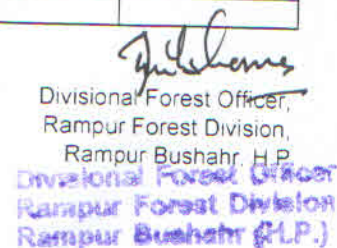 Divisional Forest Officer,
Rampur Forest Division,
Rampur Bushahr. H.P
Divisional Forest Officer
Rampur Forest Division
Rampur Bushahr (H.P.)